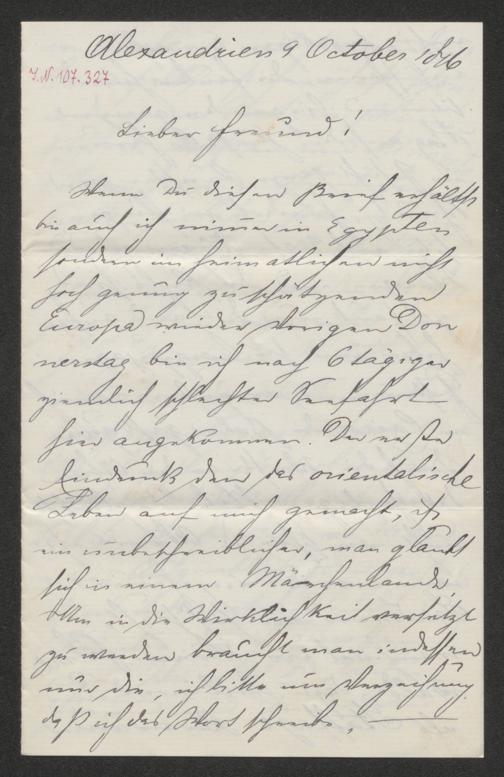 Alexandrien 9 October 1896
I.N. 107.327
Lieber Freund!
Wenn Du diesen Brief erhältst
bin auch ich nimmer in Egypten
sondern im heimatlichen nicht
hoch genug zu schätzenden
Europa wieder Vorigen Don
nerstag bin ich nach 6 tägiger
ziemlich schlechter Seefahrt
hier angekommen. Der erste
Eindruck den das orientalische
Leben auf mich gemacht, ist
ein unbeschreiblicher, man glaubt
sich in einem Märchenlande,
Um in die Wirklichkeit versetzt
zu werden braucht man indessen
nur die, ich bitte um Verzeihung
daß ich das Wort schreibe,